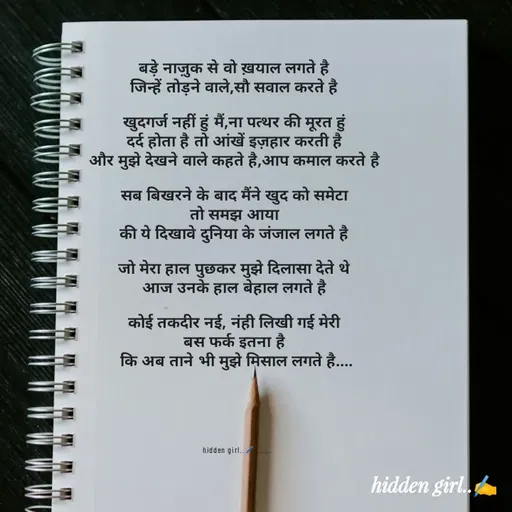 बड़े नाज़ुक से वो ख़याल लगते है
जिन्हें तोड़ने वाले,सौ सवाल करते है
खुदगर्ज नहीं हुं मैं,ना पत्थर की मूरत हुं
दर्द होता है तो आंखें इज़हार करती है
और मुझे देखने वाले कहते है,आप कमाल करते है
सब बिखरने के बाद मैंने खुद को समेटा
तो समझ आया
की ये दिखावे दुनिया के जंजाल लगते है
जो मेरा हाल पुछकर मुझे दिलासा देते थे
आज उनके हाल बेहाल लगते है
कोई तकदीर नई, नंही लिखी गई मेरी
बस फर्क इतना है
कि अब ताने भी मुझे मिसाल लगते है....
hidden girl..✍️
hidden girl..✍️